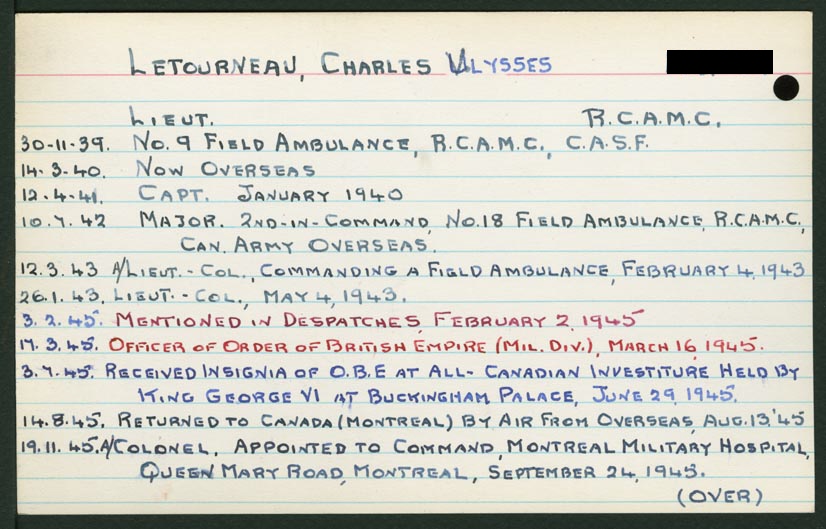 LETOURNEAU, CHARLES ULYSSES
LIEUT. R.C.A.M.C.
30-11-39. NO. 9 FIELD AMBULANCE, R.C.A.M.C., C.A.S.F.
14-3-40. NOW OVERSEAS
12-4-41. CAPT. JANUARY 1940
10.7.42 MAJOR. 2ND-IN-COMMAND, NO.18 FIELD AMBULANCE, R.C.A.M.C.,
CAN. ARMY OVERSEAS.
12.3.43 A/LIEUT.-COL., COMMANDING A FIELD AMBULANCE, FEBRUARY 4, 1943
26.1.43. LIEUT.-COL., MAY 4, 1943.
3.2.45. MENTIONED IN DESPATCHES, FEBRUARY 2, 1945
17.3.45. OFFICER OF ORDER OF BRITISH EMPIRE (MIL. DIV.), MARCH 16, 1945.
3.7.45. RECEIVED INSIGNIA OF O.B.E AT ALL-CANADIAN INVESTITURE HELD BY
KING GEORGE VI AT BUCKINGHAM PALACE, JUNE 29, 1945.
14.8.45. RETURNED TO CANADA (MONTREAL) BY AIR FROM OVERSEAS, AUG. 13, '45
19.11.45. A/COLONEL. APPOINTED TO COMMAND, MONTREAL MILITARY HOSPITAL,
QUEEN MARY ROAD, MONTREAL, SEPTEMBER 24, 1945.
(OVER)